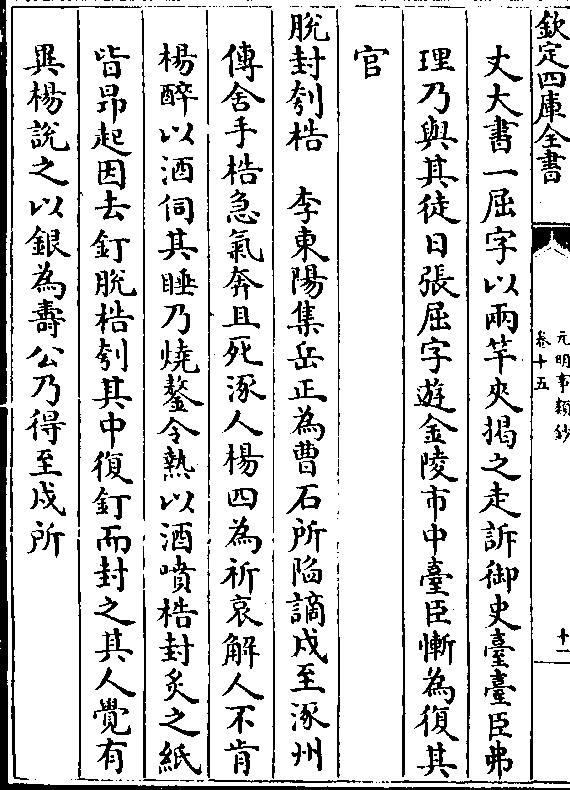 欽定四庫全書
元明事類鈔
卷十五
十二
丈大書一屈字以兩竿夾揭之走訴御史臺臺臣弗
理乃與其徒日張屈字遊金陵市中臺臣慚為復其
官
脫封刳梏　李東陽集岳正為曹石所陷謫戍至涿州
傳舍手梏急氣奔且死涿人楊四為祈哀解人不肯
楊醉以酒伺其睡乃燒鏊令熱以酒噴梏封炙之紙
皆昂起因去釘脫梏刳其中復釘而封之其人覺有
異楊說之以銀為壽公乃得至戍所